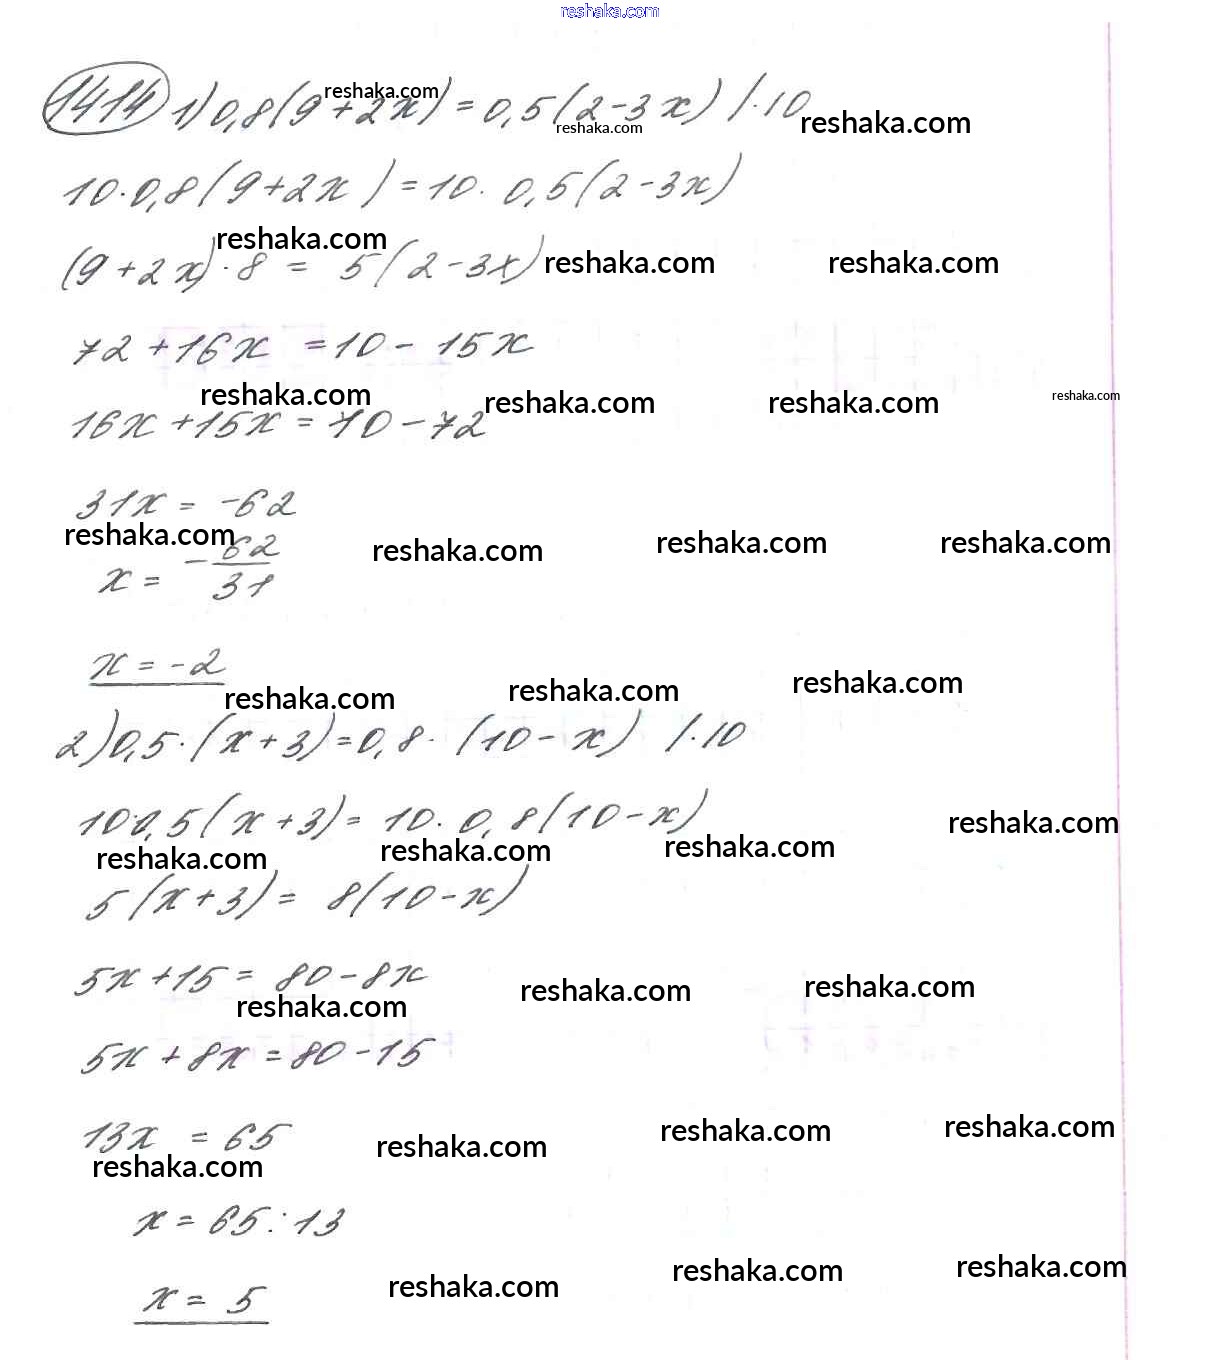 reshaka.com
1414 1) 0,8(9+2x) = 0,5(2-3x) /·10
reshaka.com
reshaka.com
reshaka.com
10·0,8(9+2x) = 10· 0,5(2-3x)
reshaka.com
(9+2x)·8 = 5(2-3x)
reshaka.com
reshaka.com
72+16x = 10 - 15x
reshaka.com
reshaka.com
reshaka.com
reshaka.com
16x+15x = 10-72
31x = -62
reshaka.com
reshaka.com
reshaka.com
reshaka.com
x = -62/31
x = -2
reshaka.com
reshaka.com
reshaka.com
2) 0,5·(x+3) = 0,8·(10-x) /·10
10·0,5(x+3) = 10·0,8(10-x)
reshaka.com
reshaka.com
reshaka.com
reshaka.com
5(x+3) = 8(10-x)
5x+15 = 80-8x
reshaka.com
reshaka.com
reshaka.com
5x+8x = 80-15
13x = 65
reshaka.com
reshaka.com
reshaka.com
reshaka.com
x = 65:13
x = 5
reshaka.com
reshaka.com
reshaka.com